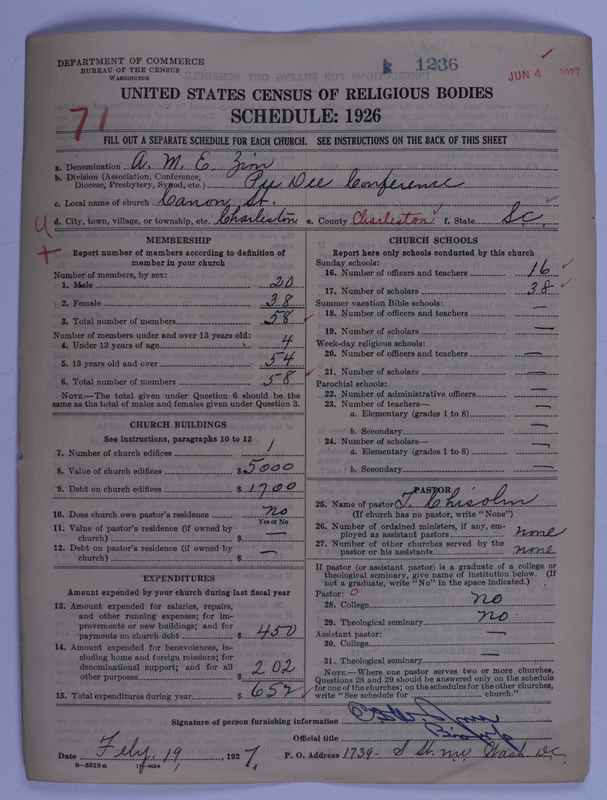 DEPARTMENT OF COMMERCE
BUREAU OF THE CENSUS
WASHINGTON
1236
JUN 4 1927
UNITED STATES CENSUS OF RELIGIOUS BODIES
SCHEDULE: 1926
71
FILL OUT A SEPARATE SCHEDULE FOR EACH CHURCH. SEE INSTRUCTIONS ON THE BACK OF THIS SHEET
a. Denomination A. M. E. Zion
b. Division (Association, Conference, Diocese, Presbytery, Synod, etc.) Pee Dee Conference
c. Local name of church Canon St.
d. City, town, village, or township, etc. Charleston e. County Charleston f. State S.C.
MEMBERSHIP
Report number of members according to definition of member in your church
Number of members, by sex:
1. Male 20
2. Female 38
3. Total number of members 58
Number of members under and over 13 years old:
4. Under 13 years of age 4
5. 13 years old and over 54
6. Total number of members 58
NOTE.—The total given under Question 6 should be the same as the total of males and females given under Question 3.
CHURCH BUILDINGS
See instructions, paragraphs 10 to 12
7. Number of church edifices 1
8. Value of church edifices $5000
9. Debt on church edifices $1700
10. Does church own pastor's residence? no
Yes or No
11. Value of pastor's residence (if owned by church) $ —
12. Debt on pastor's residence (if owned by church) $ —
EXPENDITURES
Amount expended by your church during last fiscal year
13. Amount expended for salaries, repairs, and other running expenses; for improvements or new buildings; and for payments on church debt $ 450
14. Amount expended for benevolences, including home and foreign missions; for denominational support; and for all other purposes $ 202
15. Total expenditures during year $ 652
CHURCH SCHOOLS
Report here only schools conducted by this church
Sunday schools:
16. Number of officers and teachers 16
17. Number of scholars 38
Summer vacation Bible schools:
18. Number of officers and teachers —
19. Number of scholars —
Week-day religious schools:
20. Number of officers and teachers —
21. Number of scholars —
Parochial schools:
22. Number of administrative officers —
23. Number of teachers—
a. Elementary (grades 1 to 8) —
b. Secondary —
24. Number of scholars—
a. Elementary (grades 1 to 8) —
b. Secondary —
PASTOR
25. Name of pastor T. Chisolm
(If church has no pastor, write "None")
26. Number of ordained ministers, if any, employed as assistant pastors none
27. Number of other churches served by the pastor or his assistants none
If pastor (or assistant pastor) is a graduate of a college or theological seminary, give name of institution below. (If not a graduate, write "No" in the space indicated.)
Pastor: 0
28. College no
29. Theological seminary no.
Assistant pastor: —
30. College —
31. Theological seminary
NOTE.—Where one pastor serves two or more churches, Questions 28 and 29 should be answered only on the schedule for one of the churches; on the schedules for the other churches, write "See schedule for church."
Signature of person furnishing information
Official title Bishop
Date Feby. 19, 1927. P. O. Address 1739- S St. nw, Wash D.C.
8-5519a